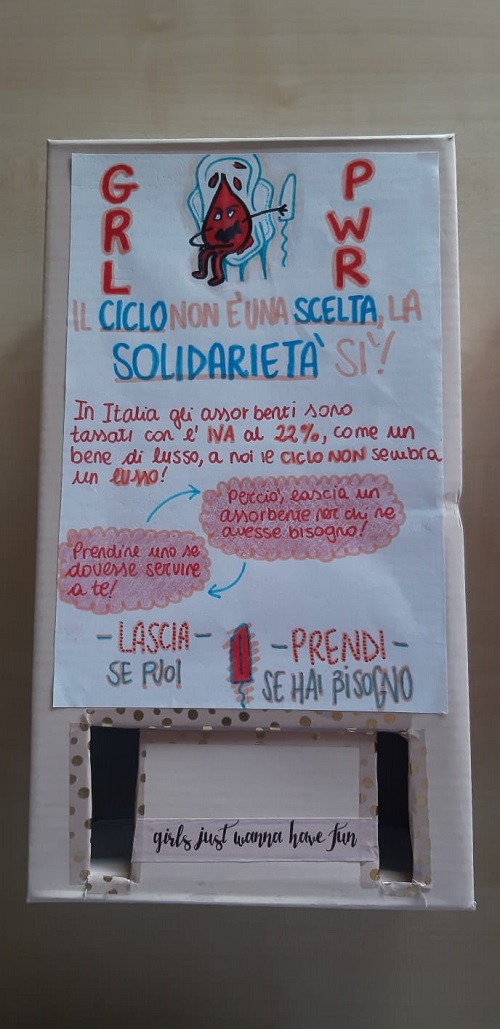 GRL
PWR
IL CICLO NON E'UNA SCELTA, LA
SOLIDARIETA' SI'!
In Italia gli assorbenti sono
tassati con l' IVA al 22%, come un
bene di lusso, a noi il CICLO NON sembra
un lusso!
Perciò, lascia un
assorbente per chi ne
avesse bisogno!
Prendine uno se
dovesse servire
a te!
- LASCIA -
SE PUOI
- PRENDI -
SE HAI BISOGNO
girls just wanna have fun